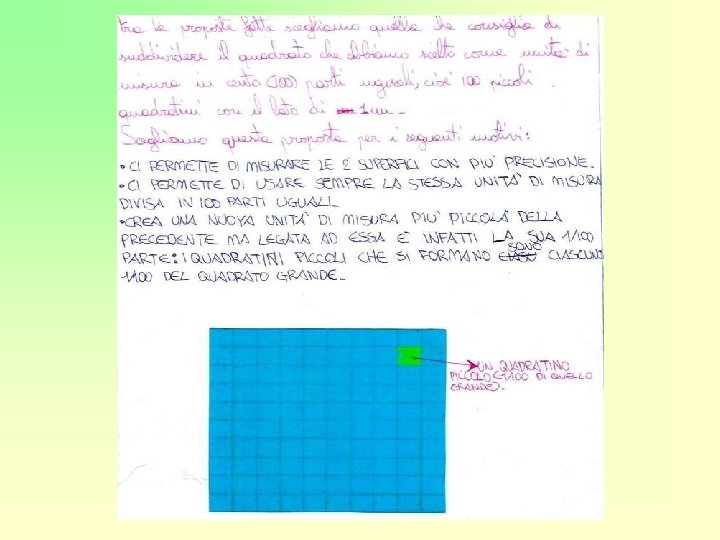 tra le proposte fatte scegliamo quella che consiglia di
suddividere il quadrato che abbiamo scelto come unità di
misura in cento (100) parti uguali, cioè 100 piccoli
quadratini con il lato di 1 cm.
Scegliamo questa proposta per i seguenti motivi:
• CI PERMETTE DI MISURARE LE 2 SUPERFICI CON PIU' PRECISIONE.
• CI PERMETTE DI USARE SEMPRE LA STESSA UNITA' DI MISURA
DIVISA IN 100 PARTI UGUALI.
• CREA UNA NUOVA UNITA' DI MISURA PIU' PICCOLA DELLA
PRECEDENTE MA LEGATA AD ESSA E' INFATTI LA SUA 1/100
PARTE: I QUADRATINI PICCOLI CHE SI FORMANO SONO CIASCUNO
1/100 DEL QUADRATO GRANDE.
UN QUADRATINO
PICCOLO (1/100 DI QUELLO
GRANDE).